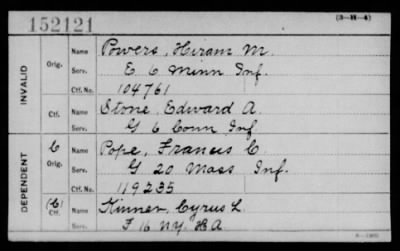 152121
(3-H-4)
INVALID
Orig.
Name Powers, Hiram M.
Serv. E 6 Minn Inf.
Ctf. No. 104761
Ctf.
Name Stone, Edward A.
Serv. G 6 Conn Inf
DEPENDENT
C
Orig.
Name Pope, Francis C.
Serv. G 20 Mass Inf.
Ctf. No. 119235
(C)
Ctf.
Name Kinner, Cyrus L.
Serv. F 16 NY. H A